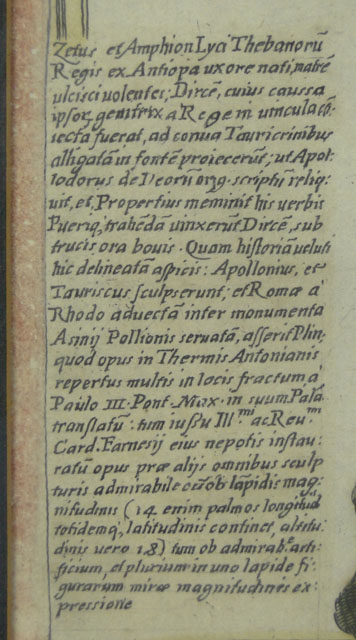 Zetus et Amphion Lyci Thebanorū
Regis ex Antiopa uxore nati, matrē
ulcisci volentes; Dircē, cuius caussa
ipsoꝝ genitrix a Rege in vincula cō-
iecta fuerat, ad cornua Tauri crinibus
alligatam in fontē proiecerūt; ut Apol-
lodorus de Deorū orig. scriptū reliq-
uit, et Propertius meminit his verbis
Pueriq, trahēdā vinxerūt Dircē, sub
trucis ora bouis. Quam historiā veluti
hic delineatā aspicis: Apollonius, et
Tauriscus sculpserunt; et Romæ à
Rhodo aduectā inter monumenta
Asinij Pollionis seruatā, asserit Plin.
quod opus in Thermis Antonianis
repertus multis in locis fractum à
Paulo III. Pont. Max. in suum Pala.
translatū. tum iussu Ill.mi ac Reu.mi
Card. Farnesij eius nepotis instau-
ratū opus præ alijs omnibus sculp
turis admirabile ob lapidis mag-
nitudinis (14 enim palmos longitud
totidemq, latitudinis continet, altitu-
dinis vero 18) tum ob admirab.e arti-
ficium, et plurium in uno lapide fi-
gurarum miræ magnitudines ex-
pressione